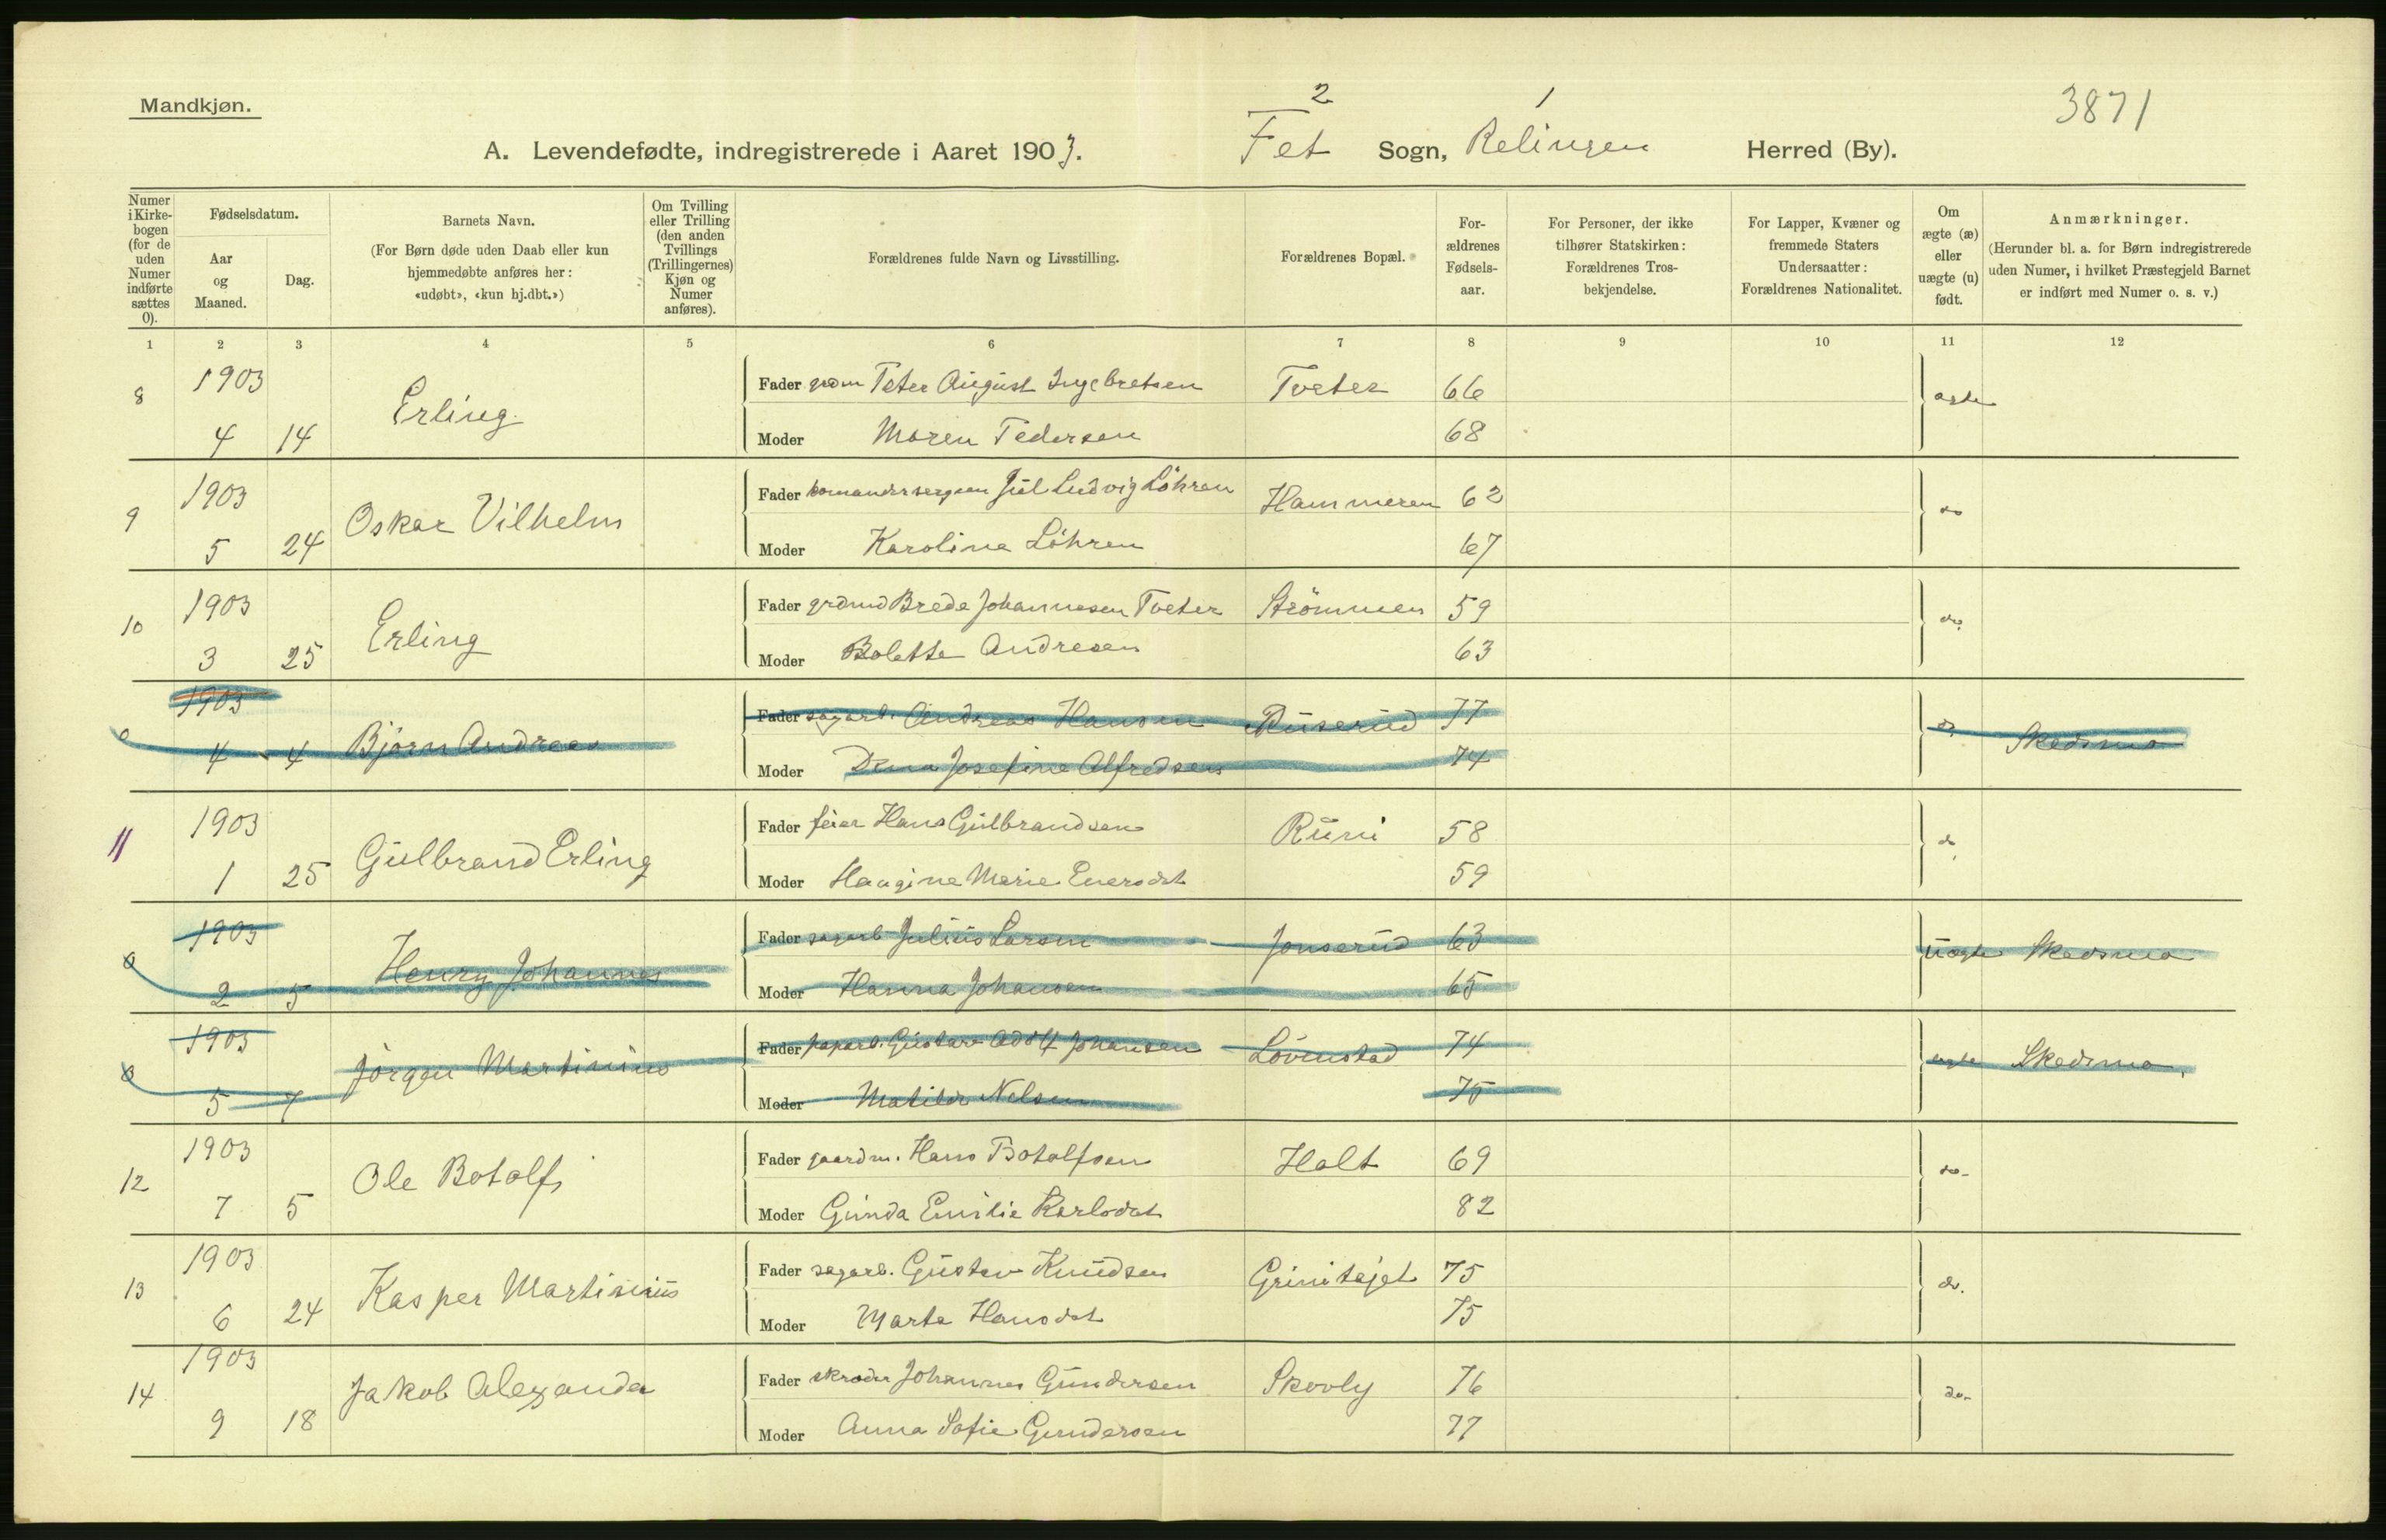 Mandkjøn.
2
1
3871
A. Levendefødte, indregistrerede i Aaret 1903.
Fet Sogn, Relingen Herred (By).
Numer i Kirkebogen (for de uden Numer indførte sættes 0).
Fødselsdatum.
Aar og Maaned.
Dag.
Barnets Navn.
(For Børn døde uden Daab eller kun hjemmedøbte anføres her: «udøbt», «kun hj.dbt.»)
Om Tvilling eller Trilling (den anden Tvillings (Trillingernes) Kjøn og Numer anføres).
Forældrenes fulde Navn og Livsstilling.
Forældrenes Bopæl.
For-ældrenes Fødsels-aar.
For Personer, der ikke tilhører Statskirken: Forældrenes Tros-bekjendelse.
For Lapper, Kvæner og fremmede Staters Undersaatter: Forældrenes Nationalitet.
Om ægte (æ) eller uægte (u) født.
Anmærkninger.
(Herunder bl. a. for Børn indregistrerede uden Numer, i hvilket Præstegjeld Barnet er indført med Numer o. s. v.)
1 2 3 4 5 6 7 8 9 10 11 12
8 1903 Erling Fader Peter August Ingebretsen Tveter 66 ægte
4 14 Moder Maren Pedersen 68
9 1903 Oskar Vilhelm Fader Jul Ludvig Löhren Hammeren 62 do
5 24 Moder Karoline Löhren 67
10 1903 Erling Fader grdmd Brede Johannesen Tveter Strömmen 59 do.
3 25 Moder Bolette Andresen 63
0 1903 Bjørn Andreas Fader sagarb. Andreas Hansen Ruserud 77 do. Skedsmo
4 4 Moder Dina Josefine Alfredsen 74
11 1903 Gulbrand Erling Fader feier Hans Gulbrandsen Runi 58 do
1 25 Moder Haagine Marie Eversdat 59
0 1903 Henry Johannes Fader sagarb Julius Larsen Jonserud 63 uægte Skedsmo
2 5 Moder Hanna Johansen 65
0 1903 Jörgen Martinius Fader paparb. Gustav Adolf Johansen Lövenstad 74 ægte Skedsmo.
5 7 Moder Matilde Nelsen 75
12 1903 Ole Botolf Fader gaardm. Hans Botolfsen Holt 69 do-
7 5 Moder Gunda Emilie Karlsdat 82
13 1903 Kasper Martinius Fader sagarb. Gustav Knudsen Grinitajet 75 do.
6 24 Moder Marte Hansdat 75
14 1903 Jakob Alexander Fader skræder Johannes Gundersen Skovly 76 do-
9 18 Moder Anna Sofie Gundersen 77